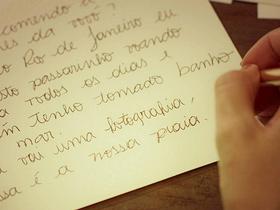 comendo a
es da vovó?
o Rio de Janeiro eu
sto passarinho voando
a todos os dias e
m tenho tomado banho
mar.
vai uma fotografia,
ssa é a nossa praia.